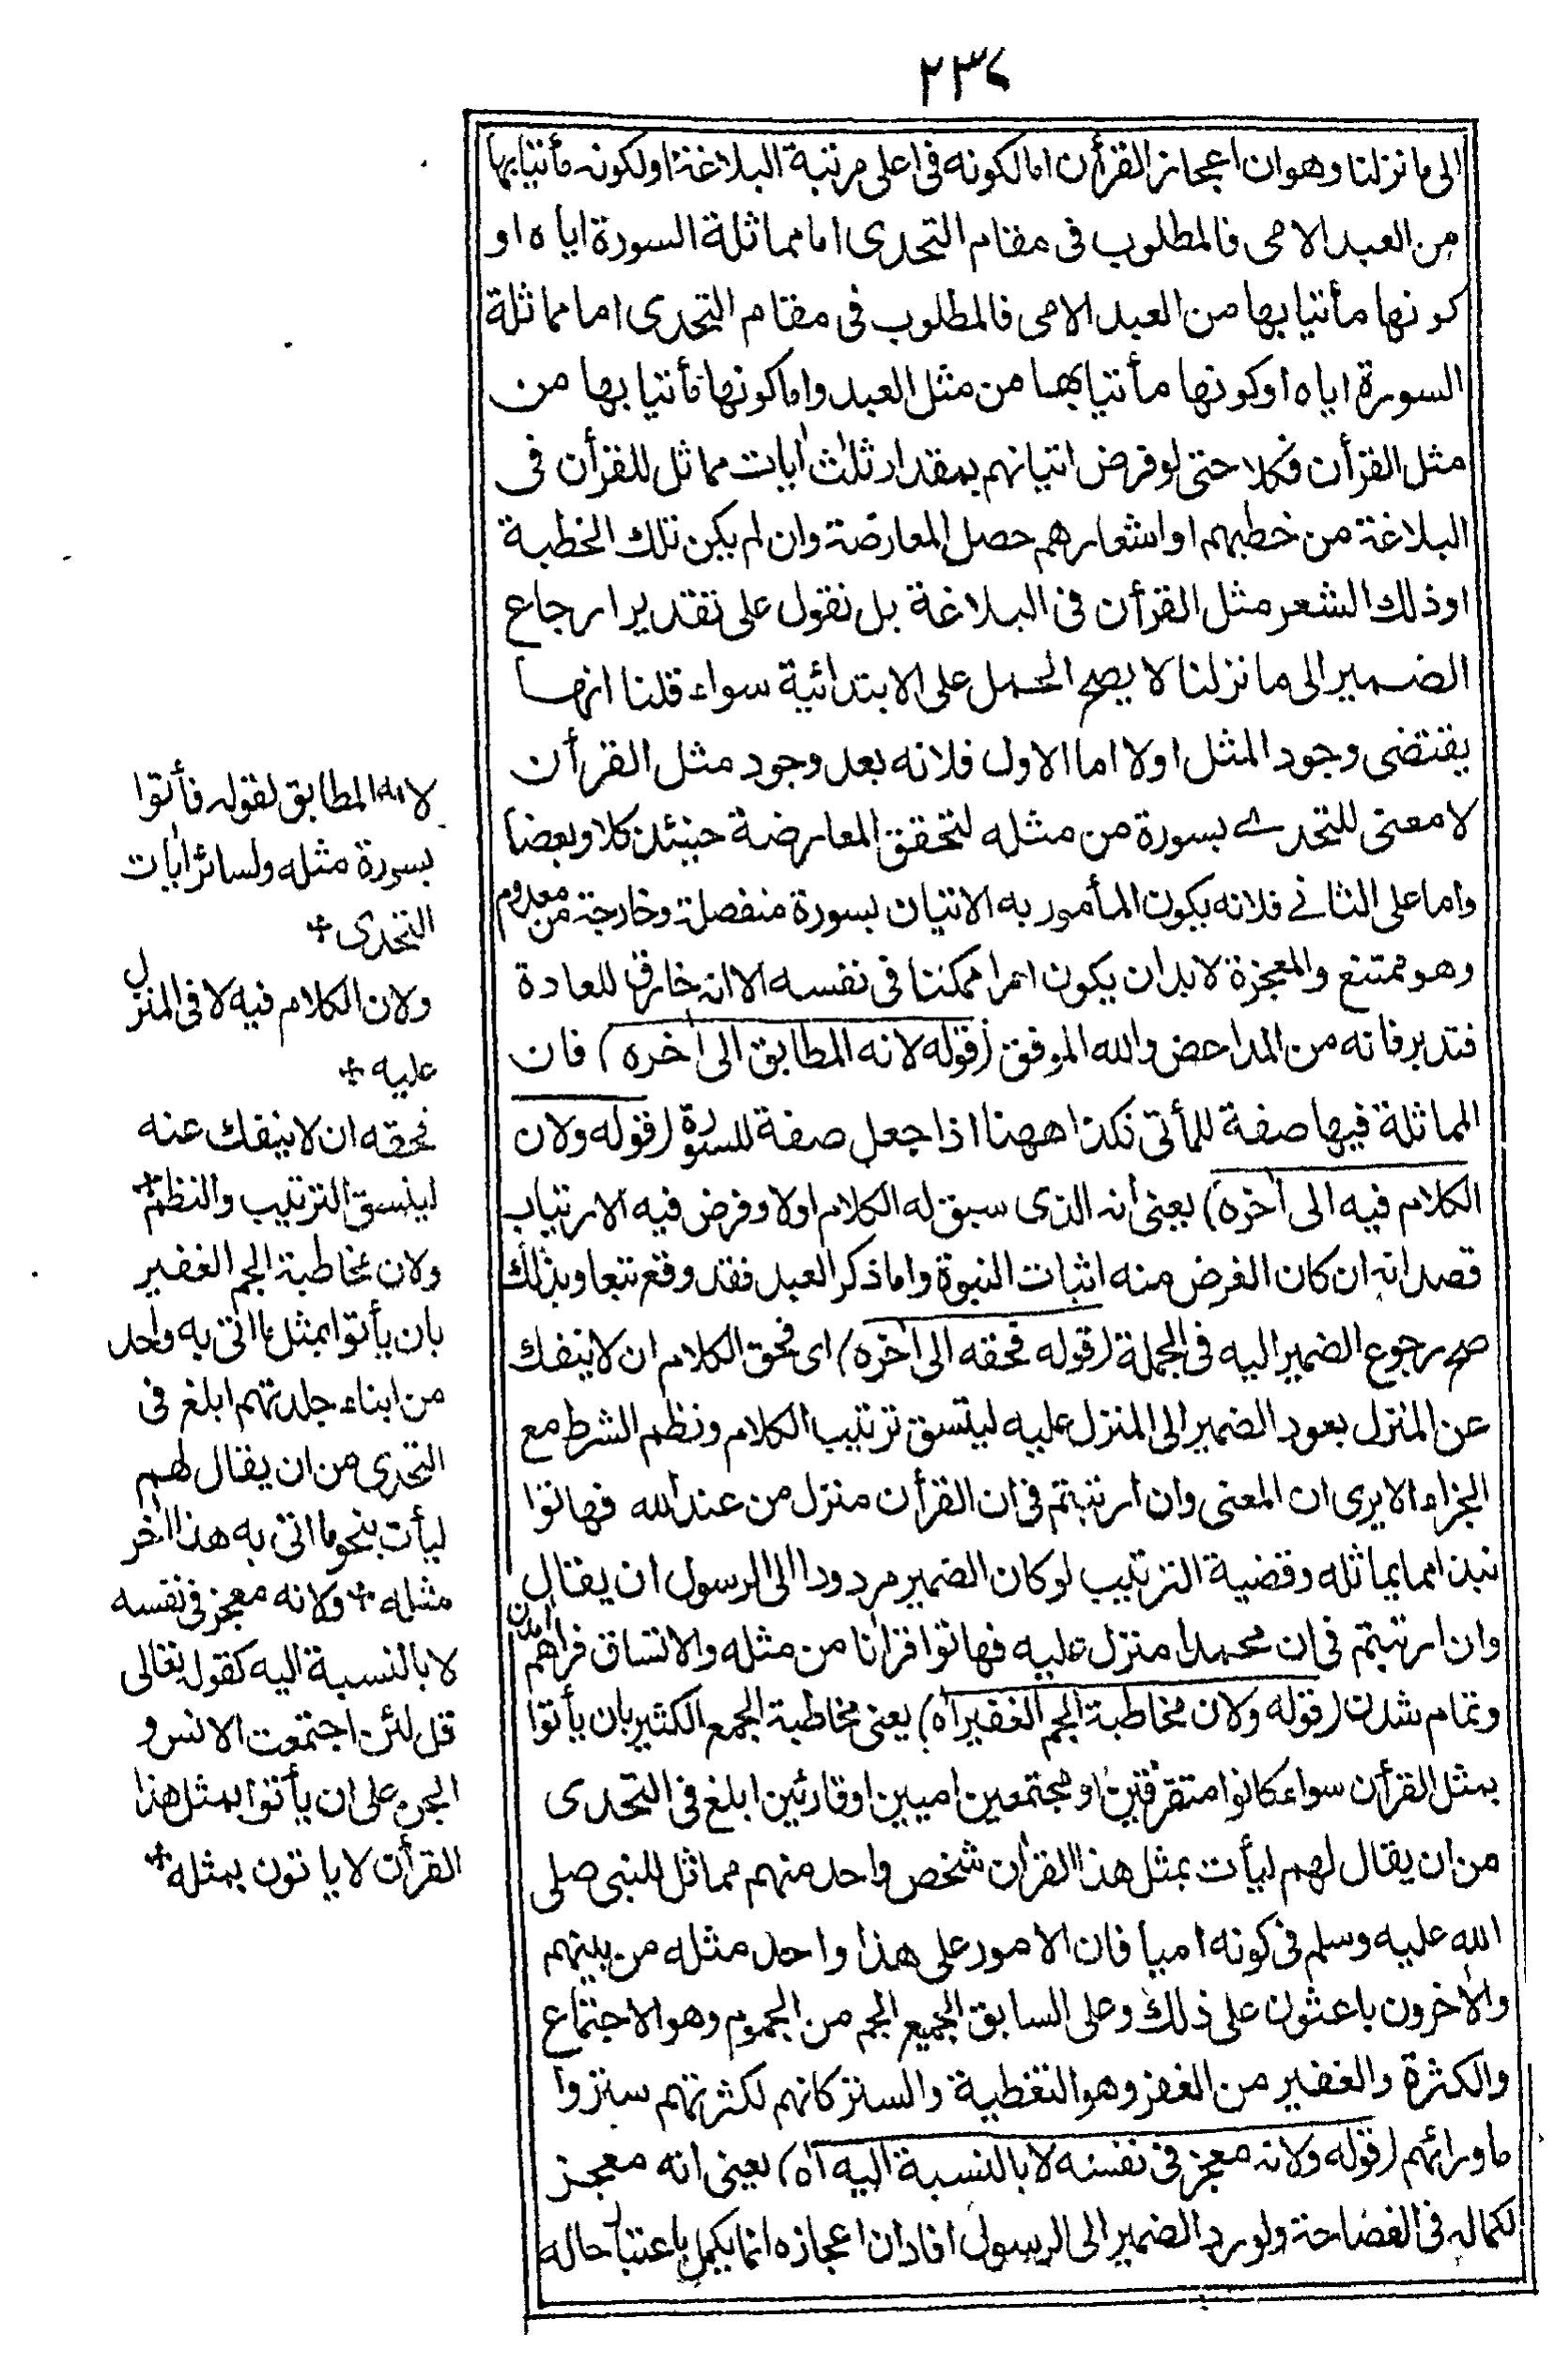 ٢٣٧
الى ما نزلنا وهو ان اعجاز القرأن اما لكونه فى اعلى مرتبة البلاغة او لكونه مأتيا بها
من العبد الامى فالمطلوب فى مقام التحدى اما مماثلة السورة اياه او
كونها مأتيا بها من العبد الامى فالمطلوب فى مقام التحدى اما مماثلة
السورة اياه او كونها مأتيا بها من مثل العبد واما كونها مأتيا بها من
مثل القرأن فكلا حتى لو فرض اتيانهم بمقدار ثلث اٰيات مماثل للقرأن فى
البلاغة من خطبهم او اشعارهم حصل المعارضة وان لم يكن تلك الخطبة
او ذلك الشعر مثل القرأن فى البلاغة بل نقول على تقدير ارجاع
الضمير الى ما نزلنا لا يصح الحمل على الابتدائية سواء قلنا انها
يقتضى وجود المثل اولا اما الاول فلانه بعد وجود مثل القرأن
لا معنى للتحدى بسورة من مثله لتحقق المعارضة حينئذ كلا وبعضا
واما على الثانى فلانه يكون المأمور به الاتيان بسورة منفصلة وخارجة من معدوم
وهو ممتنع والمعجزة لا بد ان يكون امرا ممكنا فى نفسه الا انه خارق للعادة
فتدبر فانه من المداحض والله الموفق (قوله لانه المطابق الى اٰخره) فان
المماثلة فيها صفة للمأتى فكذا ههنا اذا جعل صفة للسورة (قوله ولان
الكلام فيه الى اٰخره) يعنى انه الذى سبق له الكلام اولا وفرض فيه الارتياب
قصدا نه ان كان الغرض منه اثبات النبوة واما ذكر العبد فقد وقع تبعا وبذلك
صح رجوع الضمير اليه فى الجملة (قوله فحقه الى اٰخره) اى فحق الكلام ان لا ينفك
عن المنزل بعود الضمير الى المنزل عليه ليتسق ترتيب الكلام ونظم الشرط مع
الجزاء الا يرى ان المعنى وان ارتبتم فى ان القرأن منزل من عند الله فهاتوا
نبذا مما يماثله وقضية الترتيب لو كان الضمير مردودا الى الرسول ان يقال
وان ارتبتم فى ان محمدا منزل عليه فهاتوا قرانا من مثله والاتساق فراهم اٰمدن
وتمام شدن (قوله ولان مخاطبة الجم الغفير اه) يعنى مخاطبة الجمع الكثير بان يأتوا
بمثل القرأن سواء كانوا متفرقين او مجتمعين اميين او قارئين ابلغ فى التحدى
من ان يقال لهم ليأت بمثل هذا القرأن شخص واحد منهم مماثل للنبى صلى
الله عليه وسلم فى كونه اميا فان الامور على هذا واحد مثله من بينهم
والاٰخرون باعثون على ذلك وعلى السابق الجميع الجم من الجموم وهو الاجتماع
والكثرة والغفير من الغفر وهو التغطية والستر كانهم لكثرتهم ستروا
ما ورائهم (قوله ولانه معجز فى نفسه لا بالنسبة اليه اه) يعنى انه معجز
لكماله فى الفصاحة ولو رد الضمير الى الرسول افاد ان اعجازه انما يكمل باعتبار حاله
لانه المطابق لقوله فأتوا
بسورة مثله ولسائر اٰيات
التحدى
ولان الكلام فيه لا فى المنزل
عليه
فحقه ان لا ينفك عنه
ليتسق الترتيب والنظم
ولان مخاطبة الجم الغفير
بان يأتوا بمثل ما اتى به واحد
من ابناء جلدتهم ابلغ فى
التحدى من ان يقال لهم
ليأت بنحو ما اتى به هذا اٰخر
مثله ولانه معجز فى نفسه
لا بالنسبة اليه كقوله تعالى
قل لئن اجتمعت الانس و
الجن على ان يأتوا بمثل هذا
القرأن لا ياتون بمثله